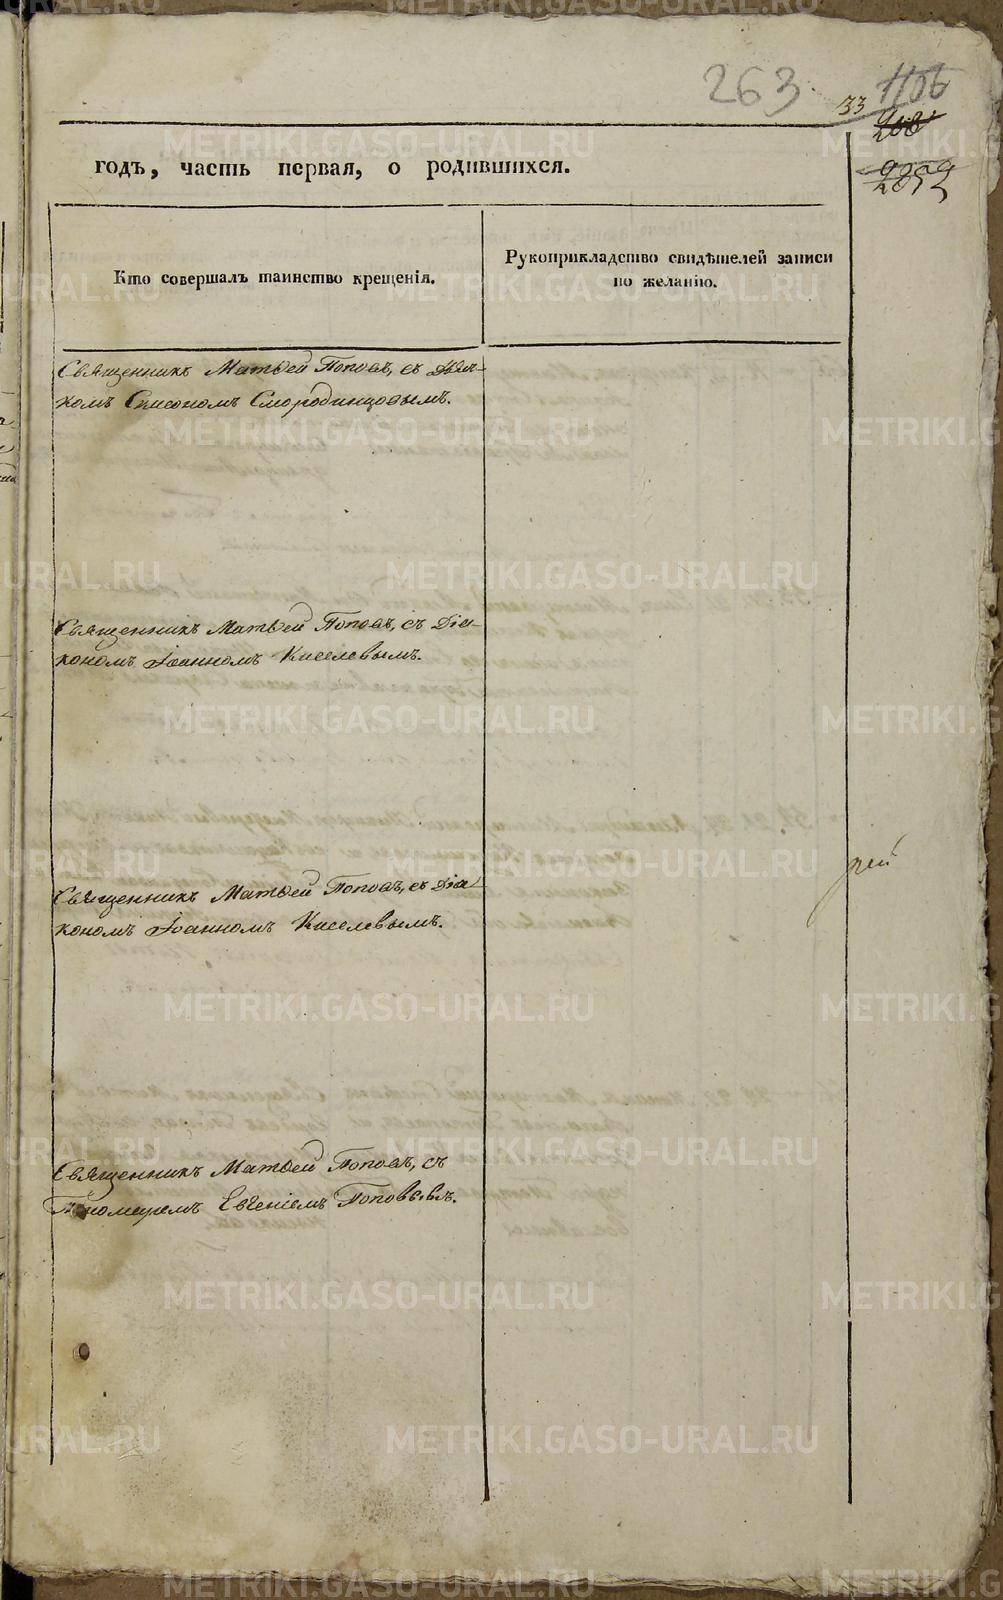 263
33
1106
годъ, часть первая, о родившихся.
Кто совершалъ таинство крещенія.
Рукоприкладство свидѣтелей записи
по желанію.
Священникъ Матѳей Поповъ, съ Дья-
комъ Симеономъ Смородинцовымъ.
Священникъ Матѳей Поповъ, съ Діа-
кономъ Іоанномъ Киселевымъ.
Священникъ Матѳей Поповъ, съ Діа
кономъ Іоанномъ Киселевымъ.
рей
Священникъ Матѳей Поповъ, съ
Пономаремъ Евгеніемъ
METRIKI.GASO-URAL.RU